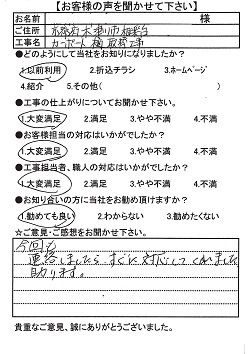 【お客様の声を聞かせて下さい】
お名前 様
ご住所 木津川市相楽台
工事名 カーポート 樋取替工事
●どのようにして当社をお知りになりましたか？
1.以前利用 2.折込チラシ 3.ホームページ
4.紹介 5.その他( )
●工事の仕上がりについてお聞かせ下さい。
1.大変満足 2.満足 3.やや不満 4.不満
●お客様担当の対応はいかがでしたか？
1.大変満足 2.満足 3.やや不満 4.不満
●工事担当者、職人の対応はいかがでしたか？
1.大変満足 2.満足 3.やや不満 4.不満
●お知り合いの方に当社をお勧め頂けますか？
1.勧めても良い 2.わからない 3.勧めたくない
☆ご意見・ご感想をお聞かせ下さい。
今回も
連絡しましたら、すぐに対応してくれました
助ります。
貴重なご意見、誠にありがとうございました。